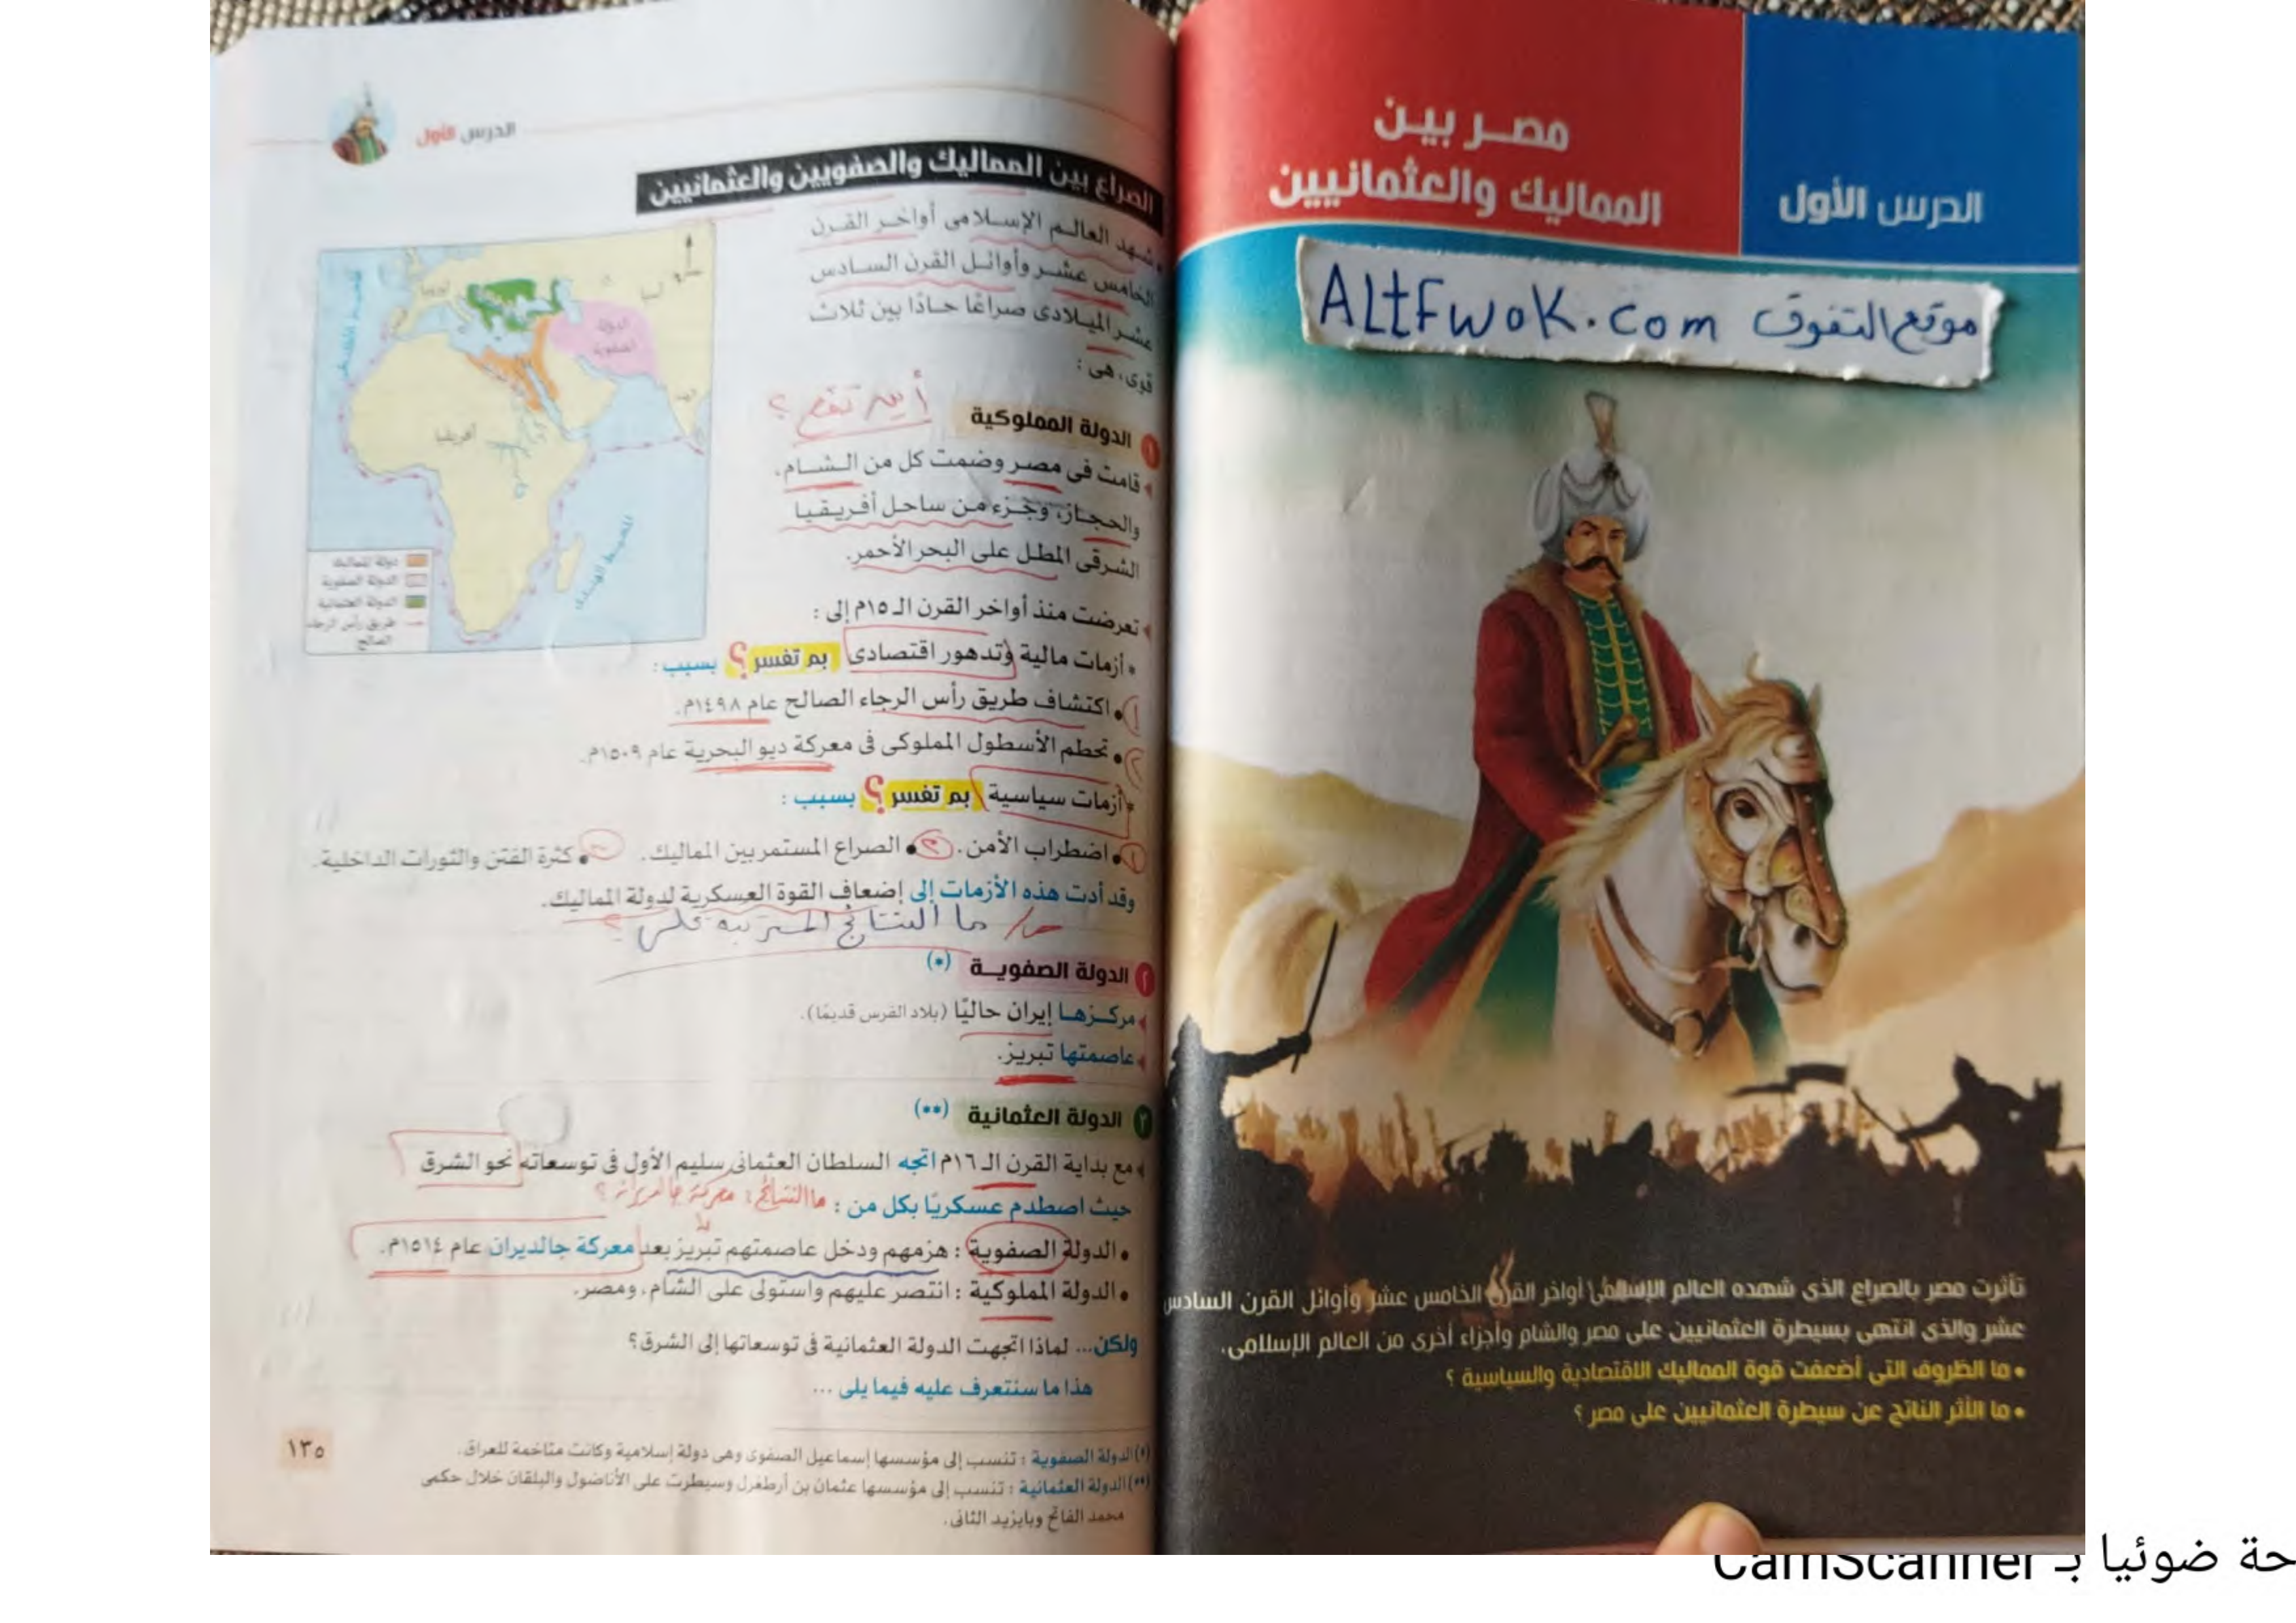 الدرس الأول
مصر بين
المماليك والعثمانيين
موقع التفوق ALtFwoK.com
تأثرت مصر بالصراع الذى شهده العالم الإسلامى أواخر القرن الخامس عشر وأوائل القرن السادس
عشر والذى انتهى بسيطرة العثمانيين على مصر والشام وأجزاء أخرى من العالم الإسلامى.
• ما الظروف التى أضعفت قوة المماليك الاقتصادية والسياسية ؟
• ما الأثر الناتج عن سيطرة العثمانيين على مصر ؟
الدرس الأول
الصراع بين المماليك والصفويين والعثمانيين
شهد العالم الإسلامى أواخر القرن
الخامس عشر وأوائل القرن السادس
عشر الميلادى صراعًا حادًا بين ثلاث
قوى، هى :
١ الدولة المملوكية
أين تقع ؟
قامت فى مصر وضمت كل من الشام،
والحجاز، وجزء من ساحل أفريقيا
الشرقى المطل على البحر الأحمر.
تعرضت منذ أواخر القرن الـ ١٥م إلى :
• أزمات مالية وتدهور اقتصادى بم تفسر ؟ بسبب :
١ • اكتشاف طريق رأس الرجاء الصالح عام ١٤٩٨م.
٢ • تحطم الأسطول المملوكى فى معركة ديو البحرية عام ١٥٠٩م.
• أزمات سياسية بم تفسر ؟ بسبب :
١ • اضطراب الأمن. ٢ • الصراع المستمر بين المماليك. ٣ • كثرة الفتن والثورات الداخلية.
وقد أدت هذه الأزمات إلى إضعاف القوة العسكرية لدولة المماليك.
ما النتائج المترتبة على ؟
٢ الدولة الصفويـة (*)
مركزها إيران حاليًا (بلاد الفرس قديمًا).
عاصمتها تبريز.
٣ الدولة العثمانية (**)
مع بداية القرن الـ ١٦م اتجه السلطان العثمانى سليم الأول فى توسعاته نحو الشرق
حيث اصطدم عسكريًا بكل من :
ما النتائج : معركة جالديران ؟
• الدولة الصفوية : هزمهم ودخل عاصمتهم تبريز بعد معركة جالديران عام ١٥١٤م.
• الدولة المملوكية : انتصر عليهم واستولى على الشام، ومصر.
ولكن... لماذا اتجهت الدولة العثمانية فى توسعاتها إلى الشرق؟
هذا ما سنتعرف عليه فيما يلى ...
(*) الدولة الصفوية : تنسب إلى مؤسسها إسماعيل الصفوى وهى دولة إسلامية وكانت متاخمة للعراق.
(**) الدولة العثمانية : تنسب إلى مؤسسها عثمان بن أرطغرل وسيطرت على الأناضول والبلقان خلال حكمى
محمد الفاتح وبايزيد الثانى.
١٣٥
أوروبا
آسيا
الدولة
الصفوية
الهند
أفريقيا
المحيط الهندى
دولة المماليك
الدولة الصفوية
الدولة العثمانية
طريق رأس الرجاء
الصالح
حة ضوئيا بـ CamScanner